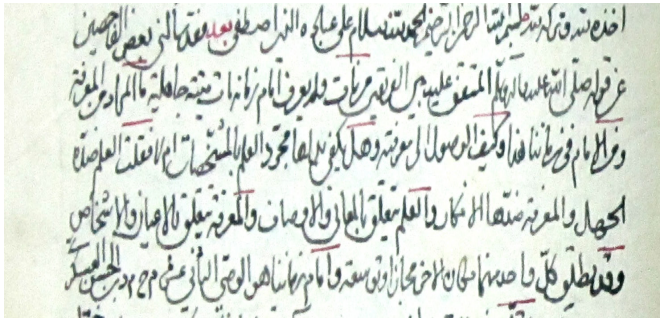 بسم الله الرحمن الرحيم الحمد لله وسلام على عباده الذين اصطفى وبعد فقد سألني بعض الفاحصين
عن قوله صلى الله عليه وآله وسلم المتفق عليه بين الفريقين من مات ولم يعرف امام زمانه مات ميتة جاهلية ما المراد من المعرفة
ومن الامام في زماننا هذا وكيف الوصول الى معرفته وهل يكفي مجرد العلم بالمشخصات ام لا فقلت العلم ضده
الجهل والمعرفة ضدها الانكار والعلم يتعلق بالمعاني والاوصاف والمعرفة يتعلق بالاعيان والاشخاص
وقد يطلق كل واحد منهما مكان الاخر مجازا وتوسعة وامام زماننا هو الوصي الثاني عشر م ح م د بن الحسن العسكري